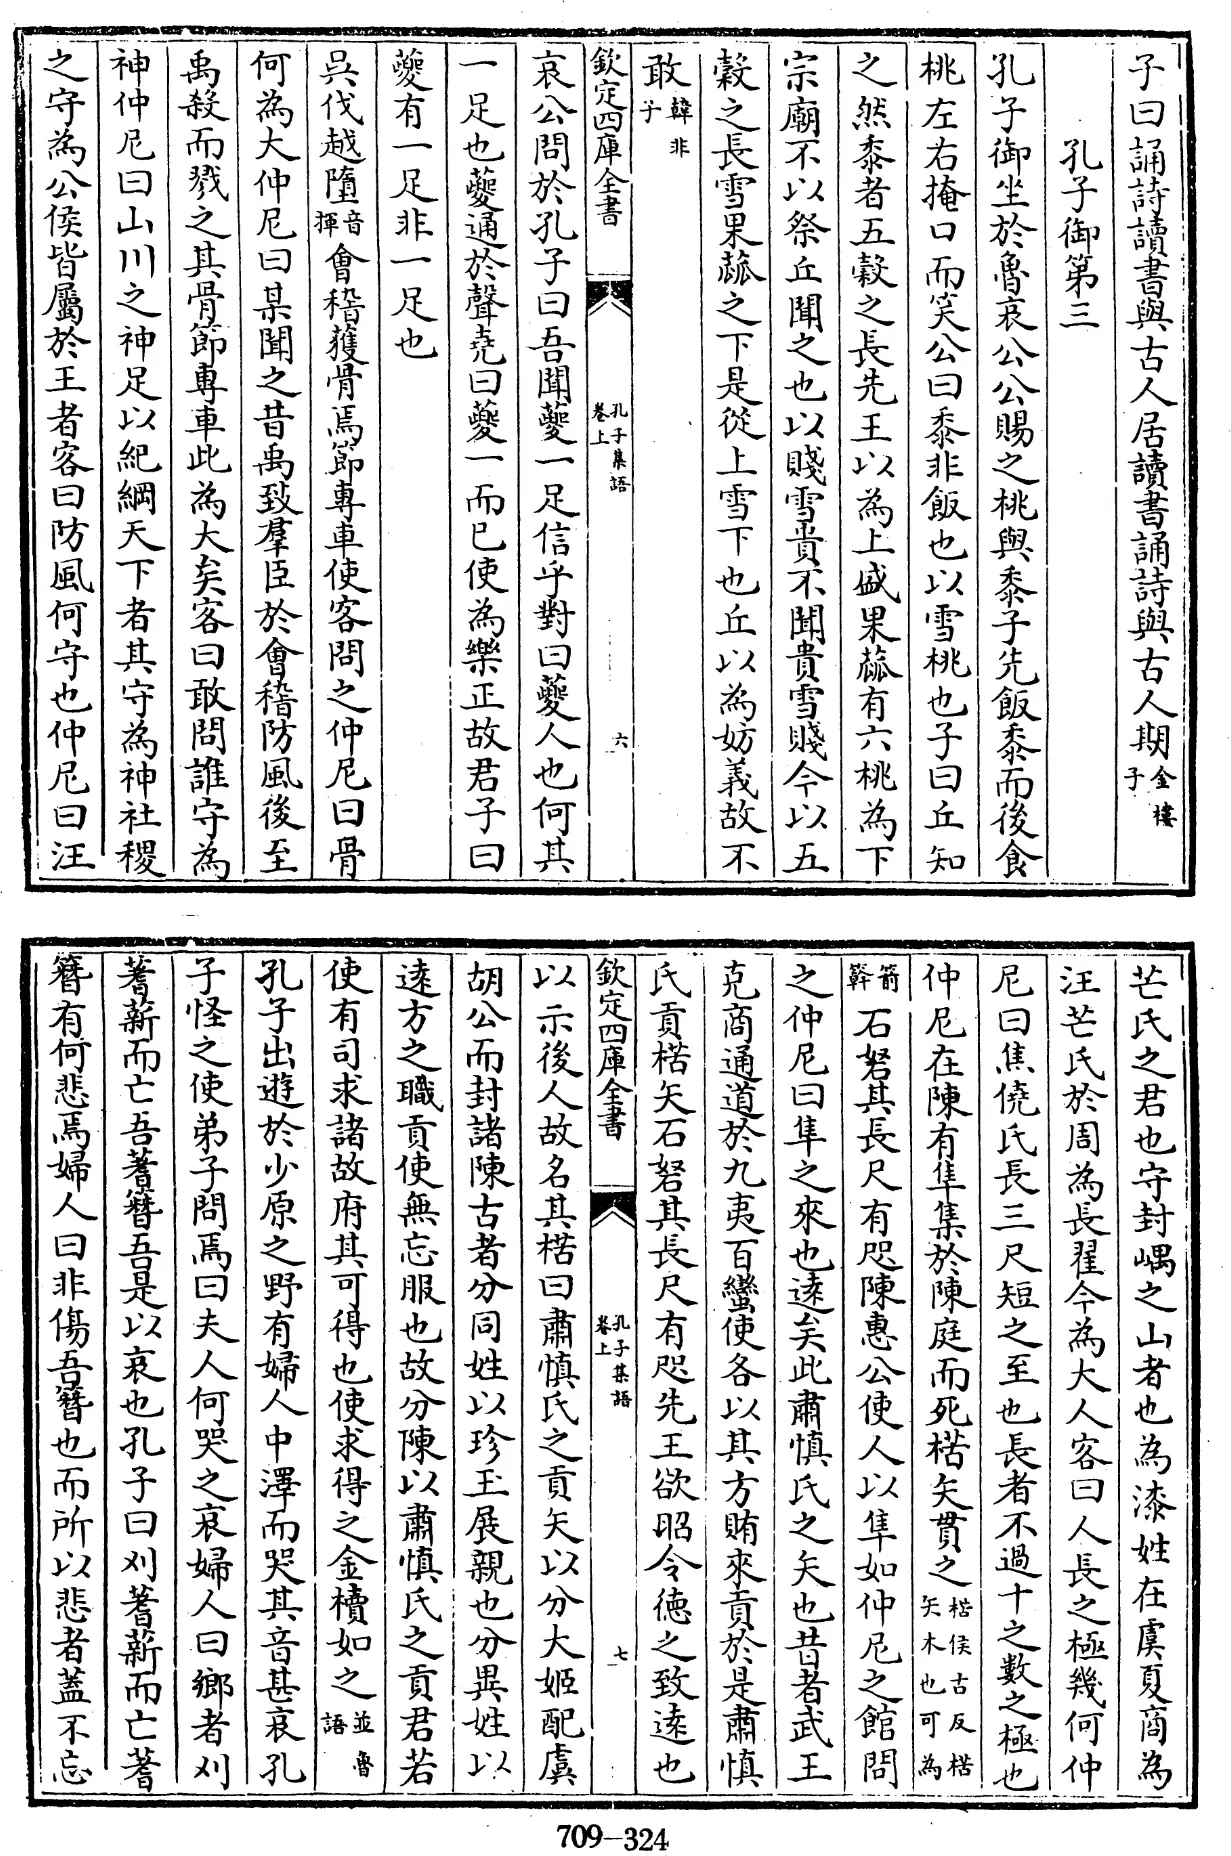 子曰誦詩讀書與古人居讀書誦詩與古人期金樓子
孔子御第三
孔子御坐於魯哀公公賜之桃與黍子先飯黍而後食
桃左右掩口而笑公曰黍非飯也以雪桃也子曰丘知
之然黍者五穀之長先王以為上盛果蓏有六桃為下
宗廟不以祭丘聞之也以賤雪貴不聞貴雪賤今以五
穀之長雪果蓏之下是從上雪下也丘以為妨義故不
敢韓非子
欽定四庫全書
孔子集語
卷上
六
哀公問於孔子曰吾聞夔一足信乎對曰夔人也何其
一足也夔通於聲堯曰夔一而已使為樂正故君子曰
夔有一足非一足也
吳伐越墮音揮會稽獲骨焉節專車使客問之仲尼曰骨
何為大仲尼曰某聞之昔禹致羣臣於會稽防風後至
禹殺而戮之其骨節專車此為大矣客曰敢問誰守為
神仲尼曰山川之神足以紀綱天下者其守為神社稷
之守為公侯皆屬於王者客曰防風何守也仲尼曰汪
芒氏之君也守封嵎之山者也為漆姓在虞夏商為
汪芒氏於周為長翟今為大人客曰人長之極幾何仲
尼曰焦僥氏長三尺短之至也長者不過十之數之極也
仲尼在陳有隼集於陳庭而死楛矢貫之楛侯古反楛矢木也可為
箭簳石砮其長尺有咫陳惠公使人以隼如仲尼之館問
之仲尼曰隼之來也遠矣此肅慎氏之矢也昔者武王
克商通道於九夷百蠻使各以其方賄來貢於是肅慎
氏貢楛矢石砮其長尺有咫先王欲昭令德之致遠也
欽定四庫全書
孔子集語
卷上
七
以示後人故名其楛曰肅慎氏之貢矢以分大姬配虞
胡公而封諸陳古者分同姓以珍玉展親也分異姓以
遠方之職貢使無忘服也故分陳以肅慎氏之貢君若
使有司求諸故府其可得也使求得之金櫝如之並魯語
孔子出遊於少原之野有婦人中澤而哭其音甚哀孔
子怪之使弟子問焉曰夫人何哭之哀婦人曰鄉者刈
蓍薪而亡吾蓍簪吾是以哀也孔子曰刈蓍薪而亡蓍
簪有何悲焉婦人曰非傷吾簪也而所以悲者蓋不忘
709-324